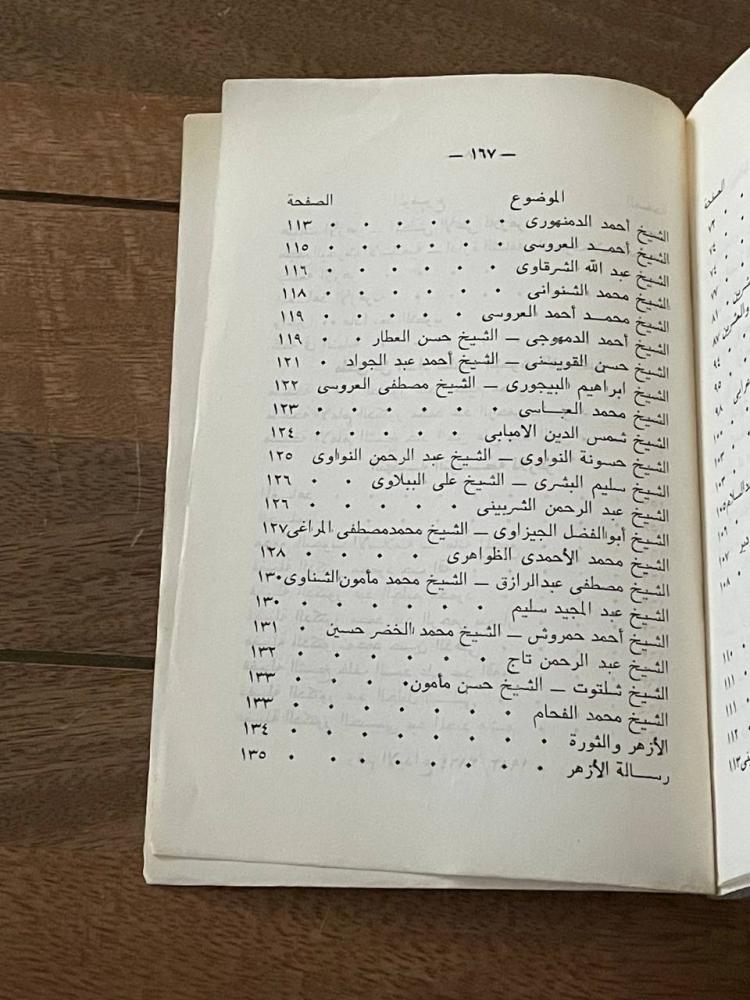 — ١٦٧ —
الموضوع الصفحة
الشيخ أحمد الدمنهورى ١١٣
الشيخ أحمـد العروسى ١١٥
الشيخ عبد الله الشرقاوى ١١٦
الشيخ محمد الشنوانى ١١٨
الشيخ محمـد أحمد العروسى ١١٩
الشيخ أحمد الدمهوجى ــ الشيخ حسن العطار ١١٩
الشيخ حسن القويسنى ــ الشيخ أحمد عبد الجواد ١٢١
الشيخ ابراهيم البيجورى ــ الشيخ مصطفى العروسى ١٢٢
الشيخ محمد العبـاسى ١٢٣
الشيخ شمس الدين الامبابى ١٢٤
الشيخ حسونة النواوى ــ الشيخ عبد الرحمن النواوى ١٢٥
الشيخ سليم البشرى ــ الشيخ على الببلاوى ١٢٦
الشيخ عبد الرحمن الشربينى ١٢٦
الشيخ أبوالفضل الجيزاوى ــ الشيخ محمدمصطفى المراغى ١٢٧
الشيخ محمد الأحمدى الظواهرى ١٢٨
الشيخ مصطفى عبدالرازق ــ الشيخ محمد مأمون الشناوى ١٣٠
الشيخ عبد المجيد سليم ١٣٠
الشيخ أحمد حمروش ــ الشيخ محمد الخضر حسين ١٣١
الشيخ عبد الرحمن تاج ١٣٢
الشيخ شلتوت ــ الشيخ حسن مأمون ١٣٣
الشيخ محمد الفحام ١٣٣
الأزهر والثورة ١٣٤
رسـالة الأزهر ١٣٥
الصفحة
٧٣
٧٤
٧٤
٧٧
٨١
٨٧
٩٤
٩٥
٩٨
١٠٠
١٠٣
١٠٣
١٠٥
١٠٦
١٠٧
١٠٨
١١٠
١١١
١١١
١١٢
١١٣